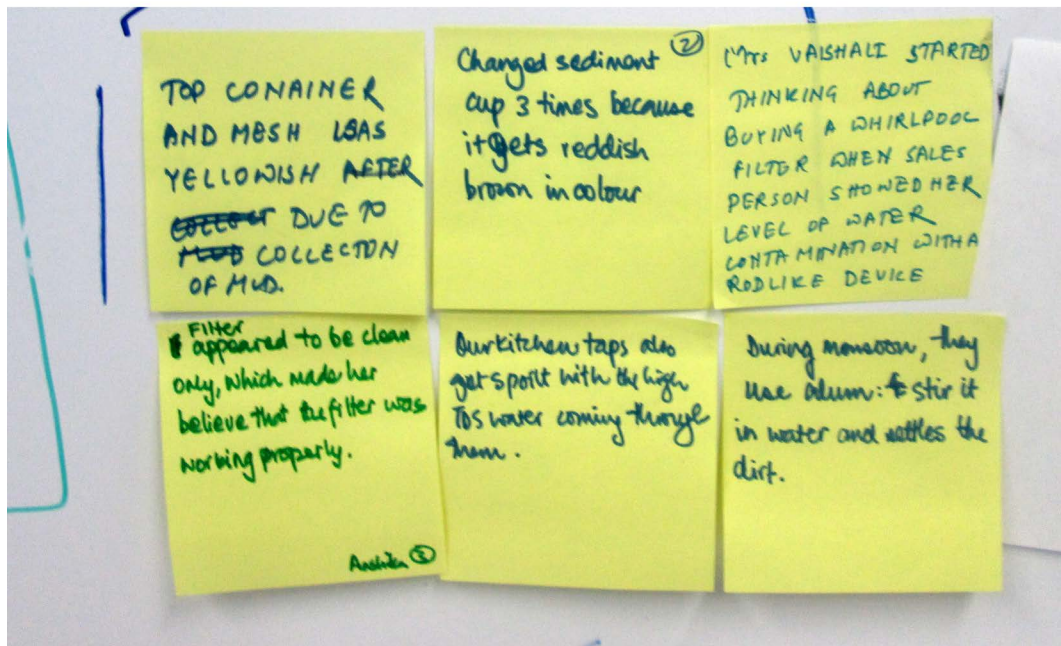 TOP CONAINER
AND MESH WAS
YELLOWISH AFTER
COLLECT DUE TO
MUD COLLECTON
OF MUD.
Changed sediment 2
cup 3 times because
it gets reddish
brown in colour
Mrs VAISHALI STARTED
THINKING ABOUT
BUYING A WHIRLPOOL
FILTER WHEN SALES
PERSON SHOWED HER
LEVEL OF WATER
CONTAMINATION WITH A
RODLIKE DEVICE
Filter
appeared to be clean
only, which made her
believe that the filter was
working properly.
Anshita 3
Our kitchen taps also
get spoilt with the high
TDS water coming through
them.
During monsoon, they
use alum: & stir it
in water and settles the
dirt.